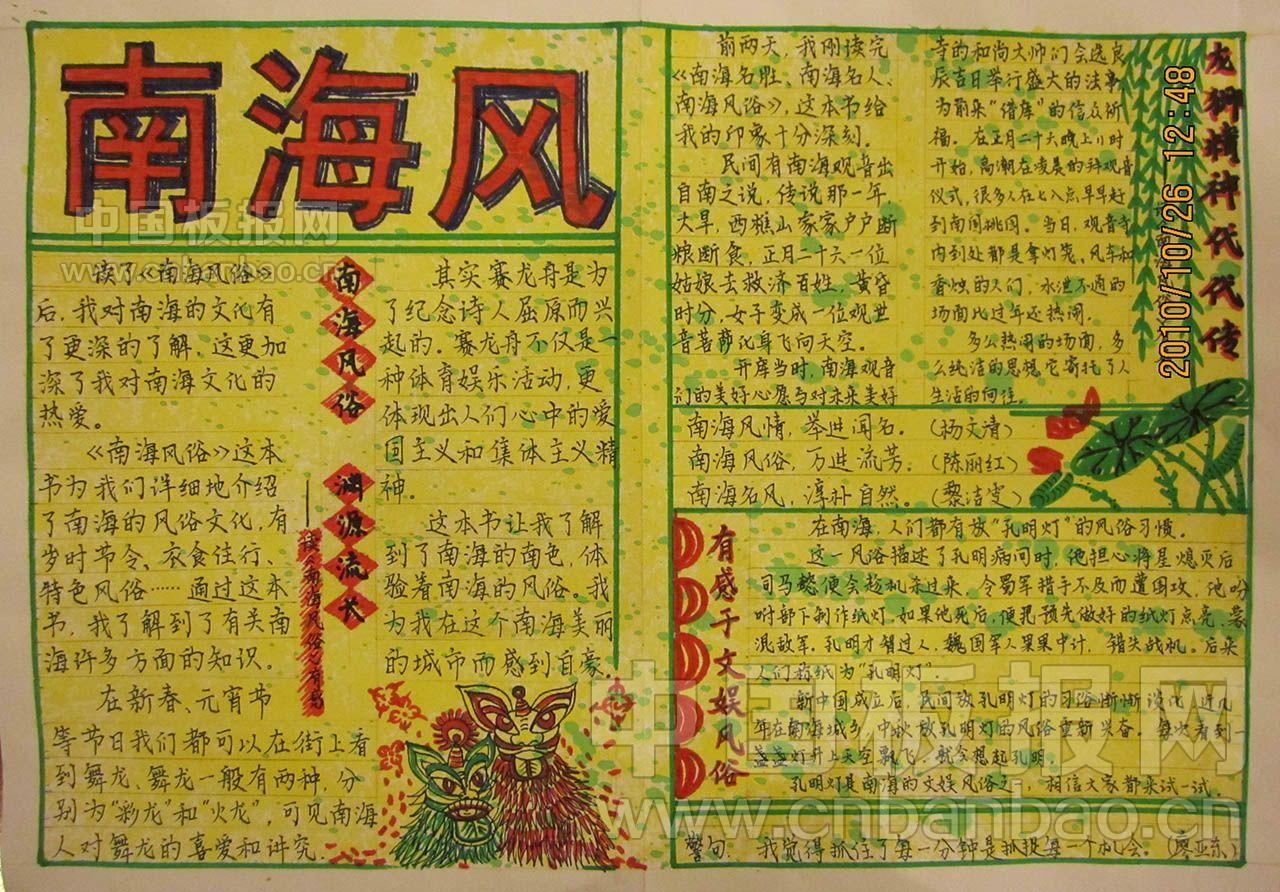 南海风
读了《南海风俗》
后,我对南海的文化有
了更深的了解,这更加
深了我对南海文化的
热爱。
《南海风俗》这本
书为我们详细地介绍
了南海的风俗文化,有
岁时节令、衣食住行、
特色风俗……通过这本
书,我了解到了有关南
海许多方面的知识。
在新春、元宵节
等节日我们都可以在街上看
到舞龙、舞龙一般有两种,分
别为“彩龙”和“火龙”,可见南海
人对舞龙的喜爱和讲究.
南海风俗 渊源流长
其实赛龙舟是为
了纪念诗人屈原而兴
起的。赛龙舟不仅是一
种体育娱乐活动,更
体现出人们心中的爱
国主义和集体主义精
神。
这本书让我了解
到了南海的南色,体
验着南海的风俗。我
为我在这个南海美丽
的城市而感到自豪。
前两天,我刚读完
《南海名胜、南海名人、
南海风俗》,这本书给
我的印象十分深刻。
民间有南海观音出
自南之说,传说那一年,
大旱,西樵山家家户户断
粮断食,正月二十六一位
姑娘去救济百姓,黄昏
时分,女子变成一位观世
音菩萨化身飞向天空。
开库当时,南海观音
们的美好心愿与对未来美好
寺的和尚大师们会选良
辰吉日举行盛大的法事,
为前来“借库”的信众祈
福。在正月二十六晚上11时
开始,高潮在凌晨的拜观音
仪式,很多人在七八点早早赶
到南国桃园。当日,观音寺
内到处都是拿灯笼、风车和
香烛的人们,水泄不通的
场面比过年还热闹。
多么热闹的场面,多
么纯洁的思想它寄托了人
生活的向往。
龙狮精神代代传
南海风情,举进闻名。(杨文清)
南海风俗,万进流芳。(陈丽红)
南海名风,淳补自然。(黎洁雯)
有感于文娱风俗
在南海,人们都有放“孔明灯”的风俗习惯。
这一风俗描述了孔明病间时,他担心将星熄灭后
司马懿便会趁机杀过来,令蜀军措手不及而遭围攻,他吩
咐部下制作纸灯,如果他死后,便把预先做好的纸灯点亮,来
混敌军。孔明才智过人,魏国军人果果中计,错失战机。后来
人们称纸为“孔明灯”.
新中国成立后,民间放孔明灯的习俗渐渐淡化,近几
年在南海城乡,中秋放孔明灯的风俗重新兴奋。每次看到一
盏盏灯升上天空飘飞,就会想起孔明.
孔明灯是南海的文娱风俗之一,相信大家都来试一试.
警句:我觉得抓住了每一分钟是抓报每一个机会。(廖亚东)
2010/10/26 12:48
中国板报网
www.cnbanbao.cn
中国板报网
www.cnbanbao.cn